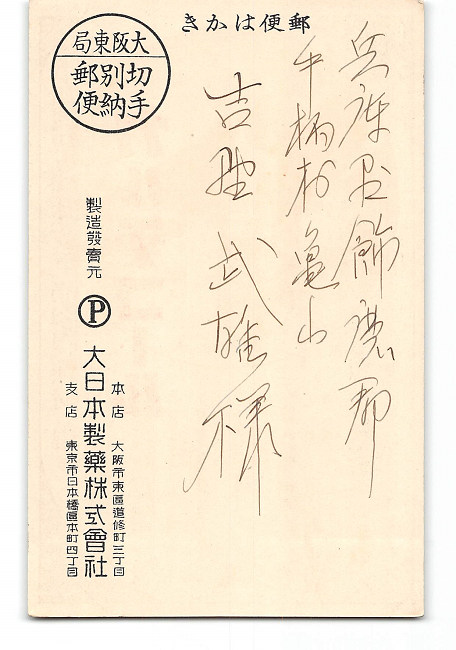 郵便はかき
兵庫県飾磨郡
手柄村亀山
吉野武雄様
大阪東局
切手別納郵便
製造發賣元
P
大日本製藥株式會社
本店 大阪市東區道修町三丁目
支店 東京市日本橋區本町四丁目